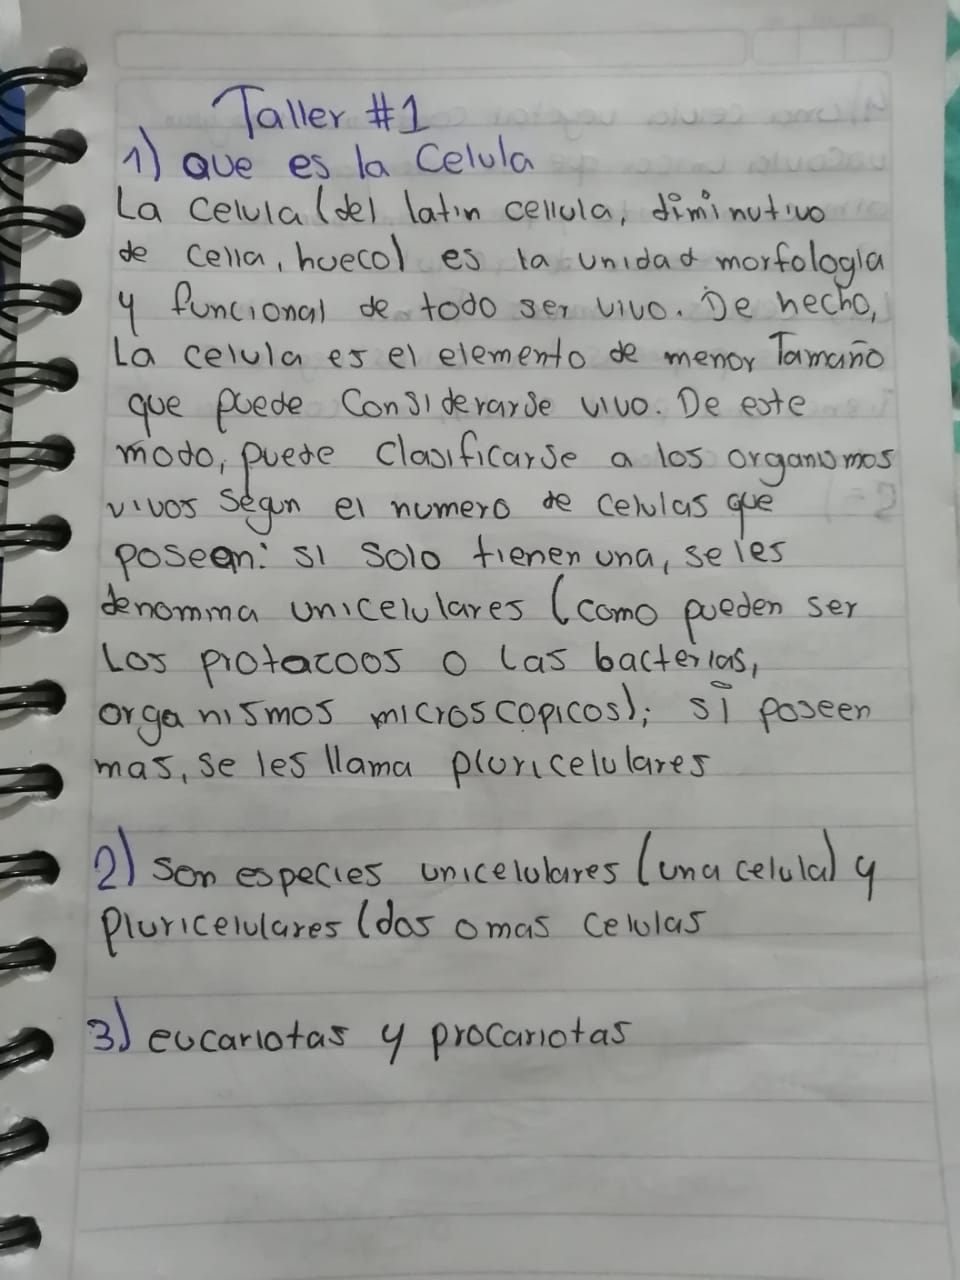 Taller #1
1) que es la Celula
La celula (del latin cellula, diminutivo
de cella, hueco) es la unidad morfologia
y funcional de todo ser vivo. De hecho,
La celula es el elemento de menor Tamaño
que puede Considerarse vivo. De este
modo, puede Clasificarse a los organismos
vivos Segun el numero de celulas que
posean: si solo tienen una, se les
denomina unicelulares (como pueden ser
Los protazoos o las bacterias,
organismos microscopicos); si poseen
mas, se les llama pluricelulares
2) Son especies unicelulares (una celula) y
pluricelulares (dos o mas celulas
3) eucariotas y procariotas